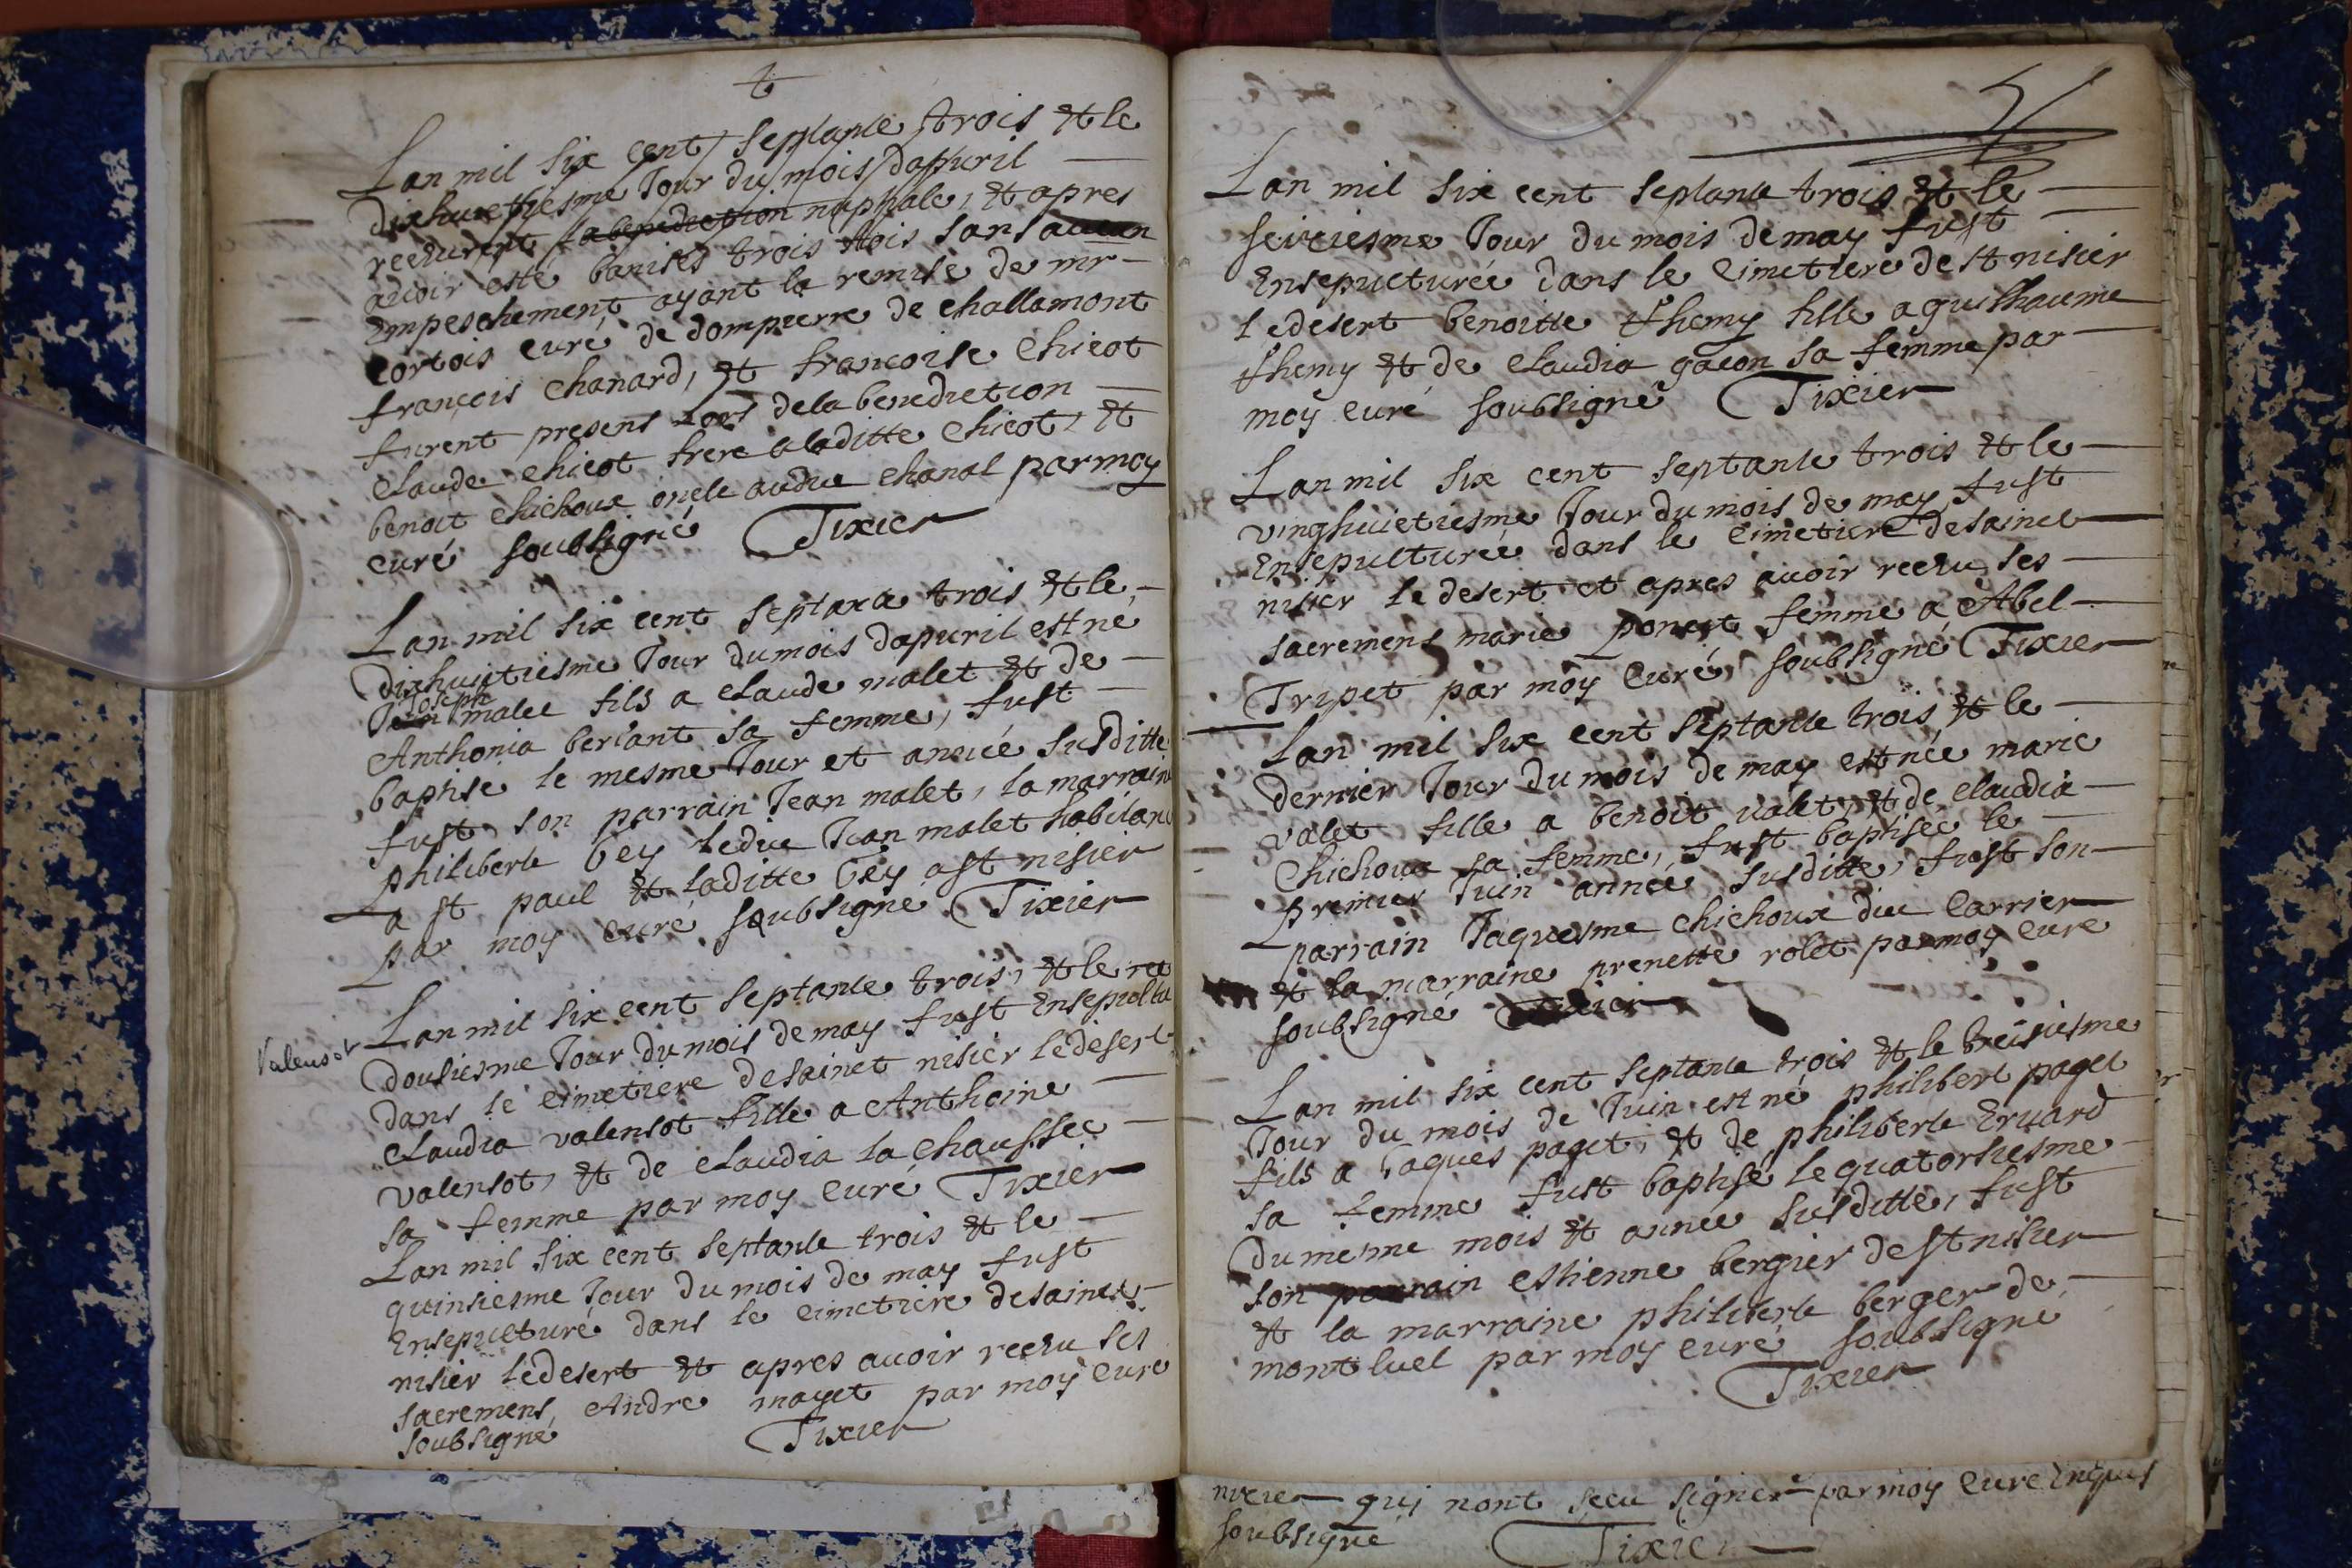 Lan mil six cent septante trois et le
dixhuictiesme Jour du mois dapvril
recrurent la benediction nuptiale, et apres
avoir esté banises trois fois sans aucun
Empeschement ayant la remise de mr
cortois curé de dompierre de challamont
françois Chanard, et francoise Chicot
furent presens Lors dela benediction
claude chicot frere a laditte chicot, et
benoit chichoux oncle audic chanal par moy
curé soubsigné Tixier
Lan mil six cent septante trois et le
Dixhuictiesme Jour du mois dapvril est né
Joseph
Jean malet fils a claude malet et de
Anthonia berlant sa femme, fust
baptise le mesme Jour et année susditte
fust son parrain Jean malet, la marraine
philiberte bey ledic Jean malet habitant
a st paul et laditte bey a st nisier
par moy curé soubsigné Tixier
Valensot
Lan mil six cent septante trois, et le
dousiesme Jour du mois de may fust Ensepultu
dans le cimetiere desainct nisier ledesert
claudia valensot fille a Anthoine
valensot, et de claudia la chaussee
sa femme par moy curé Tixier
Lan mil six cent septante trois et le
quinsiesme Jour du mois de may fust
Ensepulturé dans le cimetiere desainct
nisier ledesert et apres avoir receu ses
sacremens, Andre mayet par moy curé
soubsigné Tixier
Lan mil six cent septante trois et le
seiziesme Jour du mois de may fust
Ensepulturée dans le cimetiere de st nisier
ledesert benoitte themy fille a guilhaume
themy et de claudia gacon sa femme par
moy curé soubsigné Tixier
Lan mil six cent septante trois et le
vinghuictiesme Jour du mois de may fust
Ensepulturée dans le cimetiere desainct
nisier le desert et apres avoir receu ses
sacremens marie poncet femme a Abel
Tripet par moy curé soubsigné Tixier
Lan mil six cent septante trois et le
dernier Jour du mois de may est née marie
valet fille a benoit valet, et de claudia
Chichoux sa femme, fust baptisée le
premier Juin année susditte, fust son
parrain Jaquesme chichoux dic Carrier
et la marraine prenette rolet par moy curé
soubsigné Tixier
Lan mil six cent septante trois et le treisiesme
Jour du mois de Juin est né philibert paget
fils a Jaques paget, et de philiberte Evvard
sa femme fust baptisé le quatorsiesme
du mesme mois et année susditte, fust
son parrain estienne bergier de st nisier
et la marraine philiberte berger de
montluel par moy curé soubsigné
Tixier
qui nont sceu signer par moy curé
soubsigné Tixier